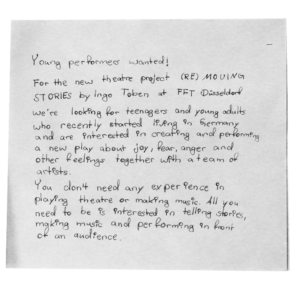 Young performers wanted!
For the new theatre project (RE) MOVING
STORIES by Ingo Toben at FFT Düsseldorf
we're looking for teenagers and young adults
who recently started living in Germany
and are interested in creating and performing
a new play about joy, fear, anger and
other feelings together with a team of
artists.
You don't need any experience in
playing theatre or making music. All you
need to be is interested in telling stories,
making music and performing in front
of an audience.